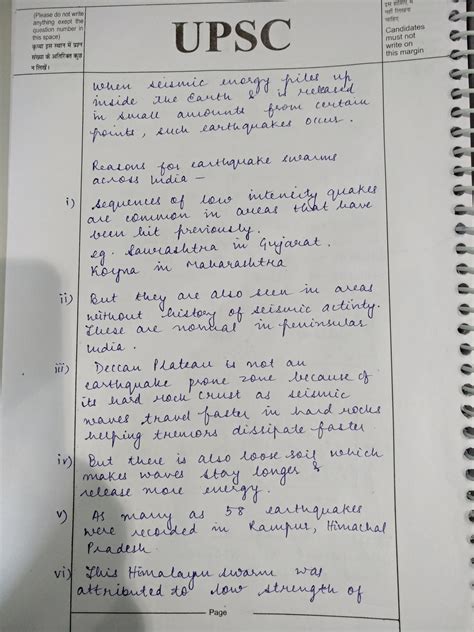 (Please do not write
anything except the
question number in
this space)
कृपया इस स्थान में प्रश्न
संख्या के अतिरिक्त कुछ
न लिखें।
UPSC
नहीं लिखना
चाहिए
Candidates
must not
write on
this margin
when seismic energy piles up
inside the Earth & is released
in small amounts from certain
points, such earthquakes occur.
Reasons for earthquake swarms
across India —
i) Sequences of low intencity quakes
are common in areas that have
been hit previously.
eg. Saurashtra in Gujarat.
Koyna in Maharashtra
ii) But they are also seen in areas
without history of seismic activity.
These are normal in peninsular
India.
iii) Deccan Plateau is not an
earthquake prone zone because of
its hard rock crust as seismic
waves travel faster in hard rocks
helping tremors dissipate faster.
iv) But there is also loose soil which
makes waves stay longer &
release more energy.
v) As many as 58 earthquakes
were recorded in Rampur, Himachal
Pradesh.
vi) This Himalayn swarm was
attributed to low strength of
Page